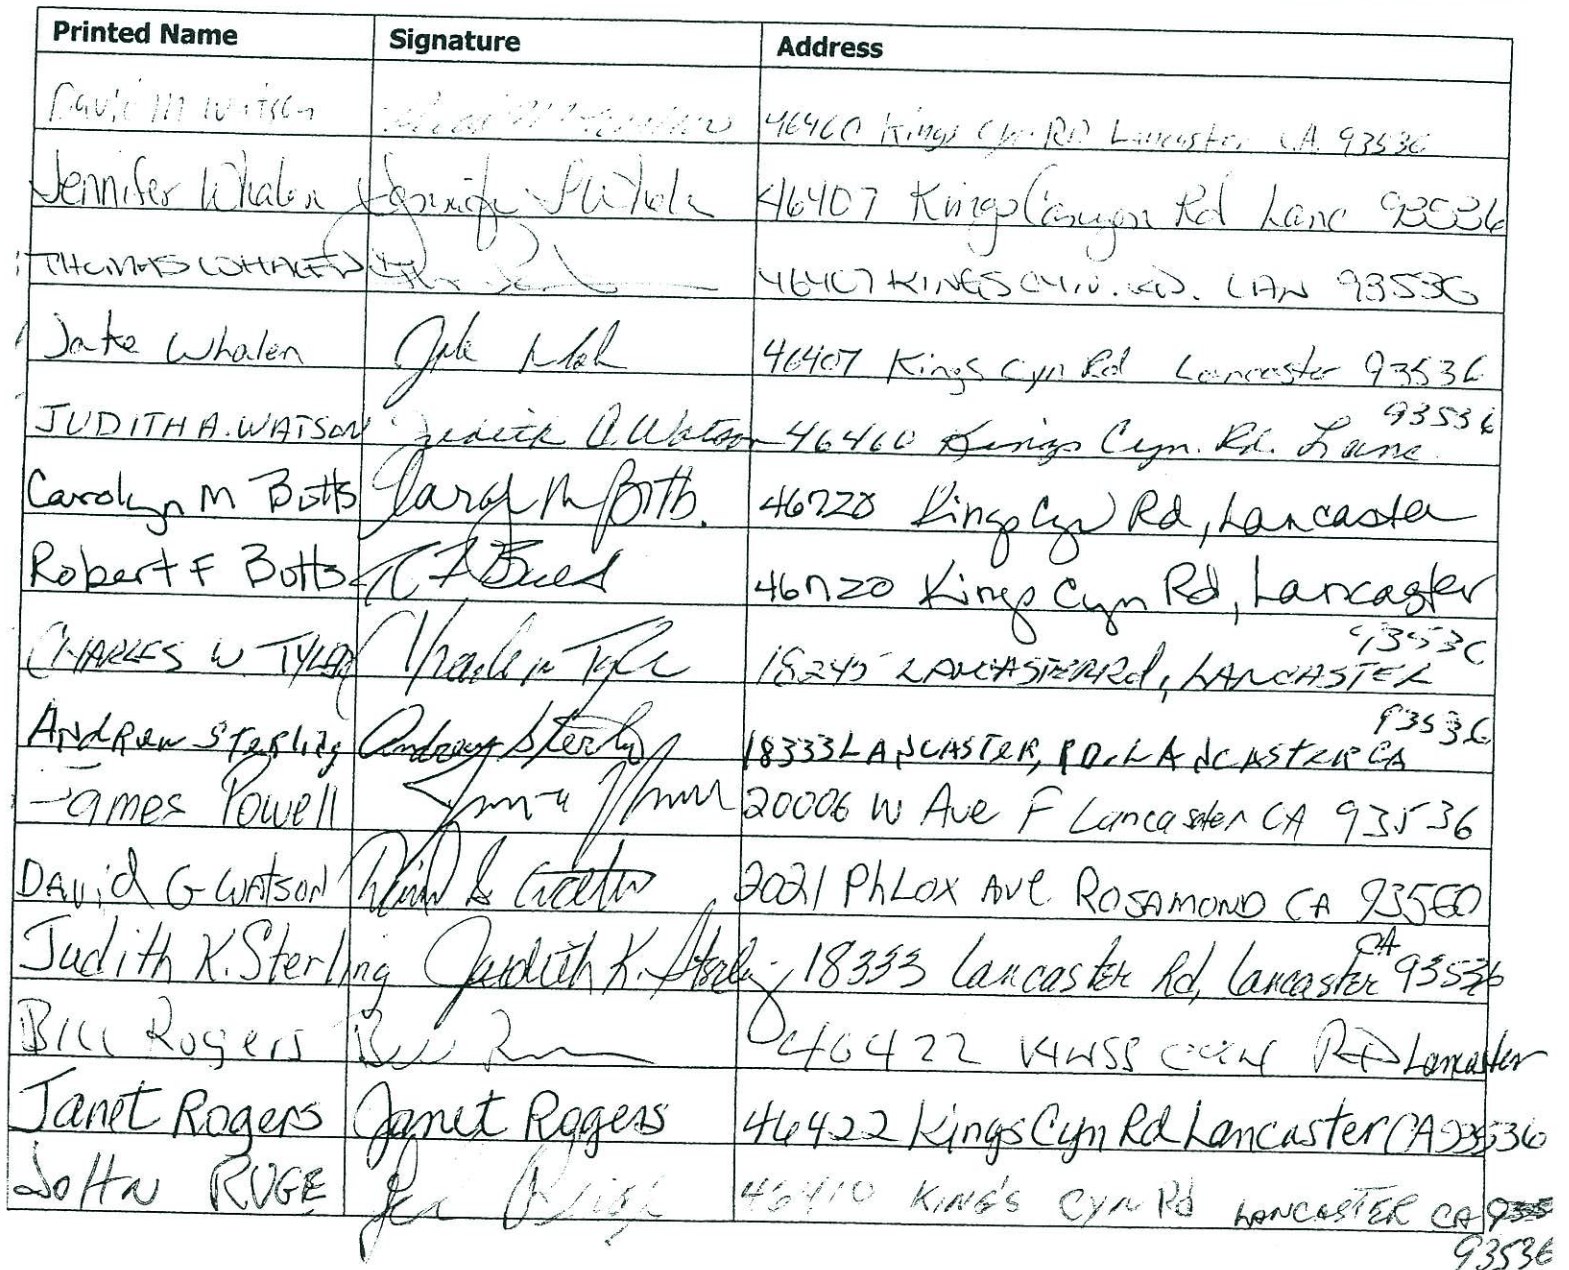 Printed Name Signature Address
David M Watson 46460 Kings Cyn Rd Lancaster CA 93536
Jennifer Whalen 46407 Kings Canyon Rd Lanc 93536
THOMAS WHALEN 46407 KINGS CYN. RD. LAN 93536
Jake Whalen 46407 Kings Cyn Rd Lancaster 93536
93536
JUDITH A. WATSON Judith A. Watson 46460 Kings Cyn. Rd. Lanc
Carolyn M Botts Carol M Botts. 46720 Kings Cyn Rd, Lancaster
Robert F Botts R F Botts 46720 Kings Cyn Rd, Lancaster
93536
CHARLES W. TYLER Charles W Tyler 18245 LANCASTER Rd, LANCASTER
93536
ANdRew STERling Andrew Sterling 18333 LANCASTER, RD. LANCASTER CA
James Powell 20006 W Ave F Lancaster CA 93536
DAVid G WATSON 2021 PhLox AVE ROSAMOND CA 93560
CA
Judith K. Sterling Judith K. Sterling 18333 Lancaster Rd, Lancaster 93536
Bill Rogers 46422 KINGS CYN RD Lancaster
Janet Rogers Janet Rogers 46422 Kings Cyn Rd Lancaster CA 93536
JoHN RUGE 46410 KING'S CYN Rd LANCASTER CA
93536